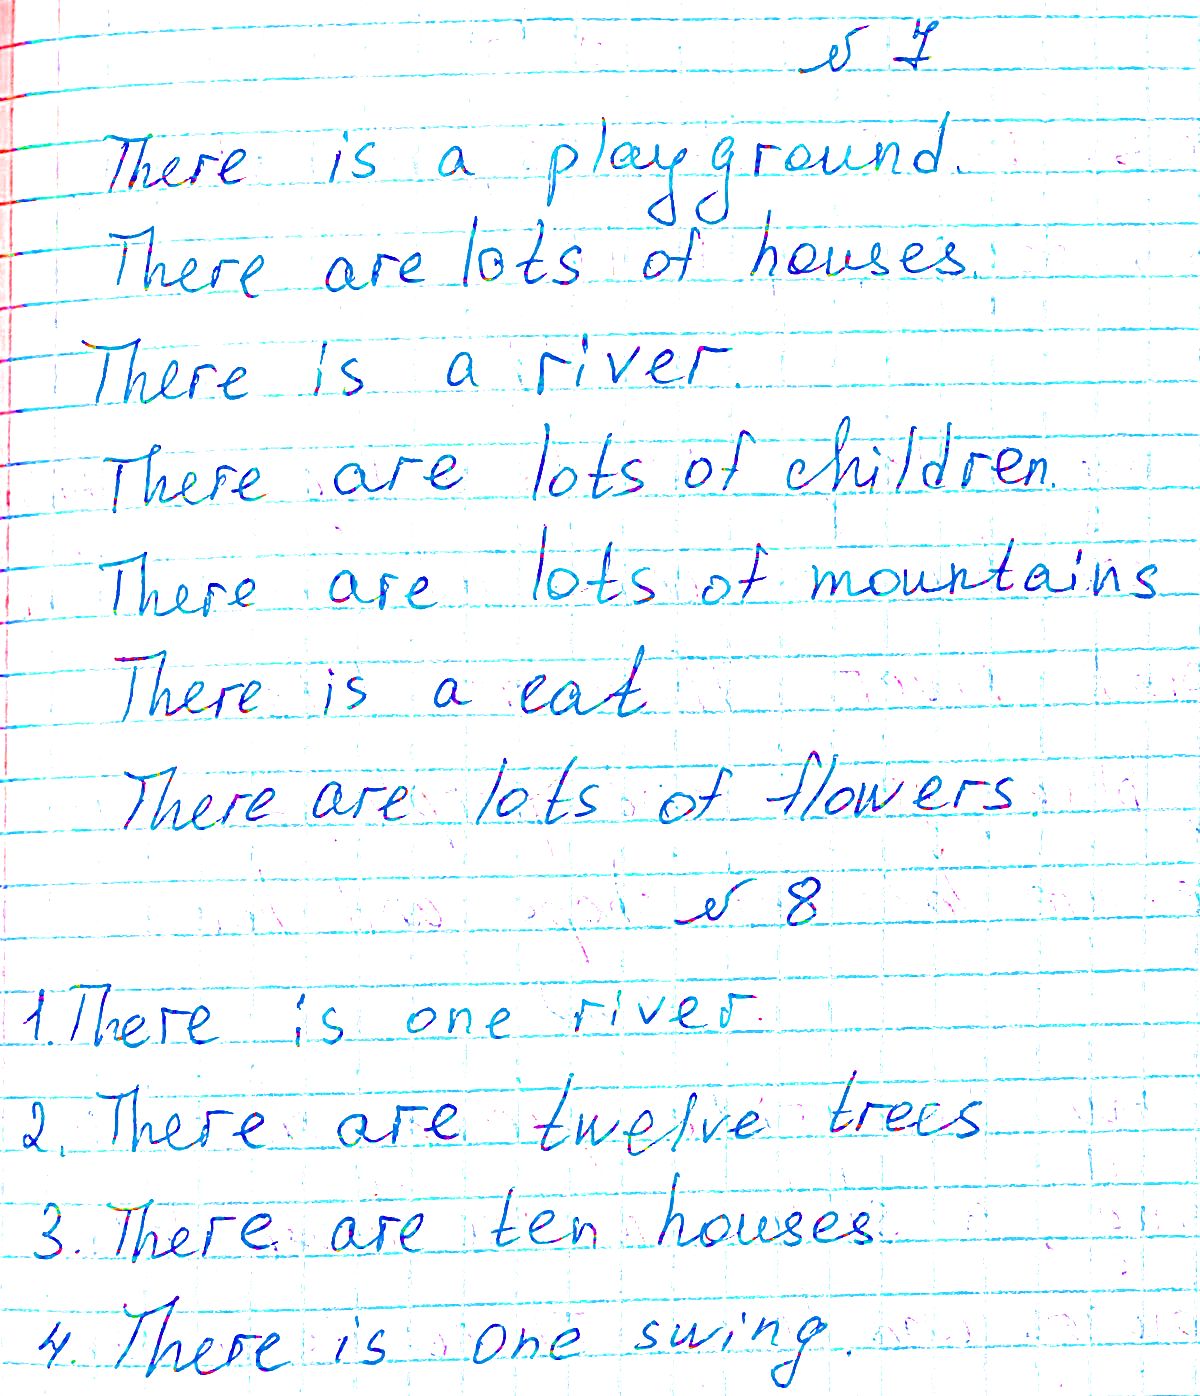 № 7
There is a playground.
There are lots of houses.
There is a river.
There are lots of children.
There are lots of mountains
There is a cat
There are lots of flowers.
№ 8
1. There is one river.
2. There are twelve trees
3. There are ten houses.
4. There is one swing.